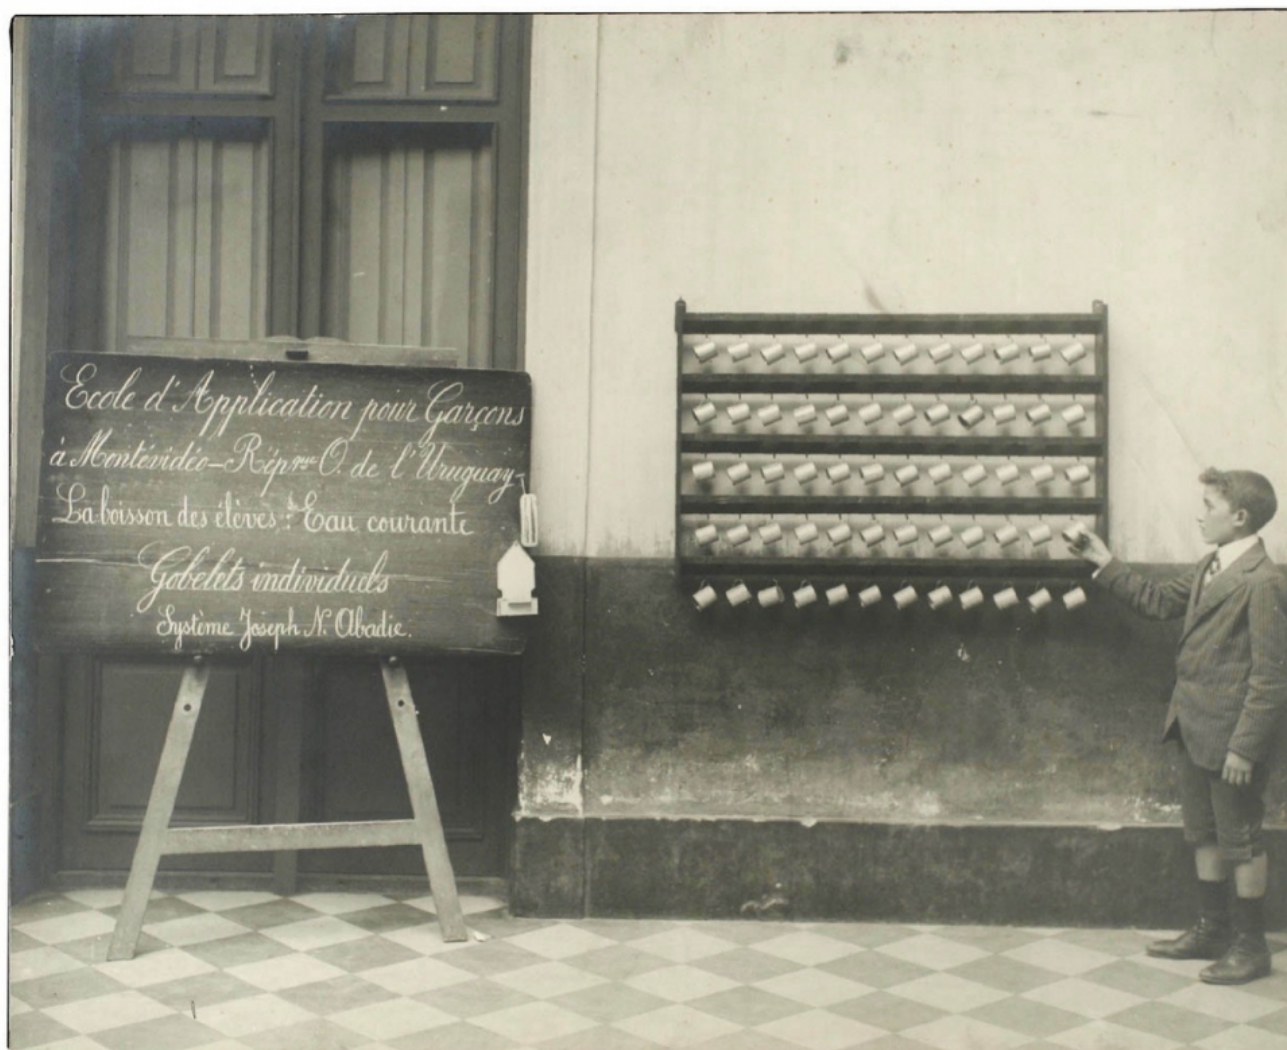 Ecole d'Application pour Garçons
à Montévidéo-Rép.que O. de l'Uruguay-
La boisson des élèves: Eau courante
Gobelets individuels
Système Joseph N. Abadie.